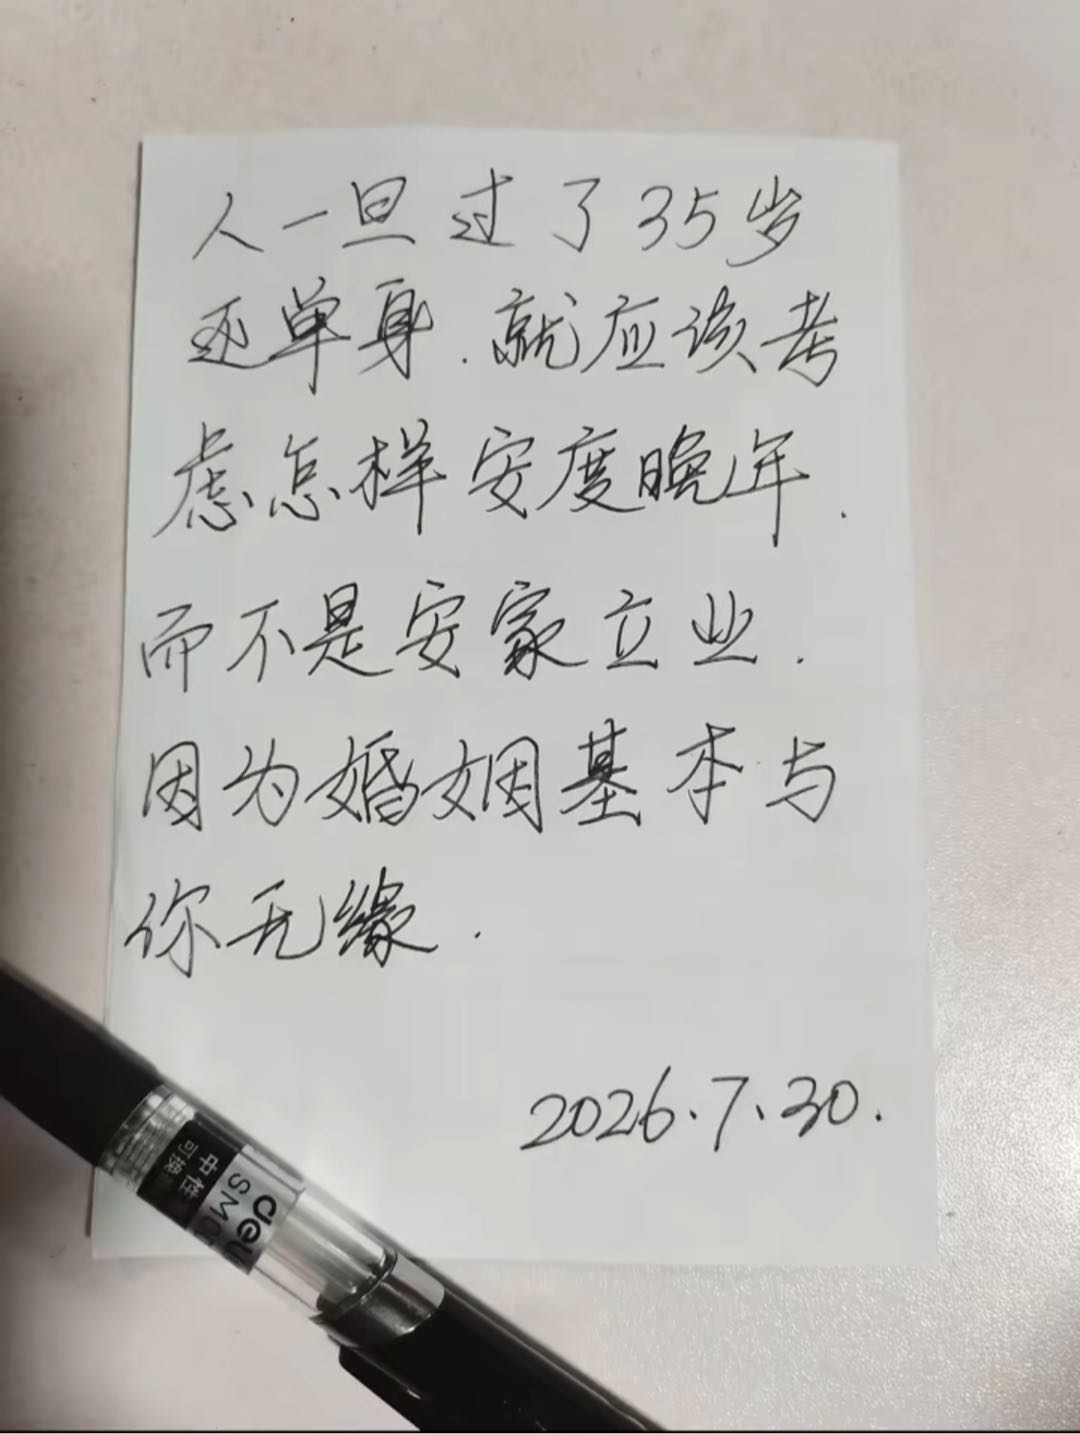 人一旦过了35岁
还单身.就应该考
虑怎样安度晚年.
而不是安家立业.
因为婚姻基本与
你无缘.
2026.7.30.
中性
可换
deli